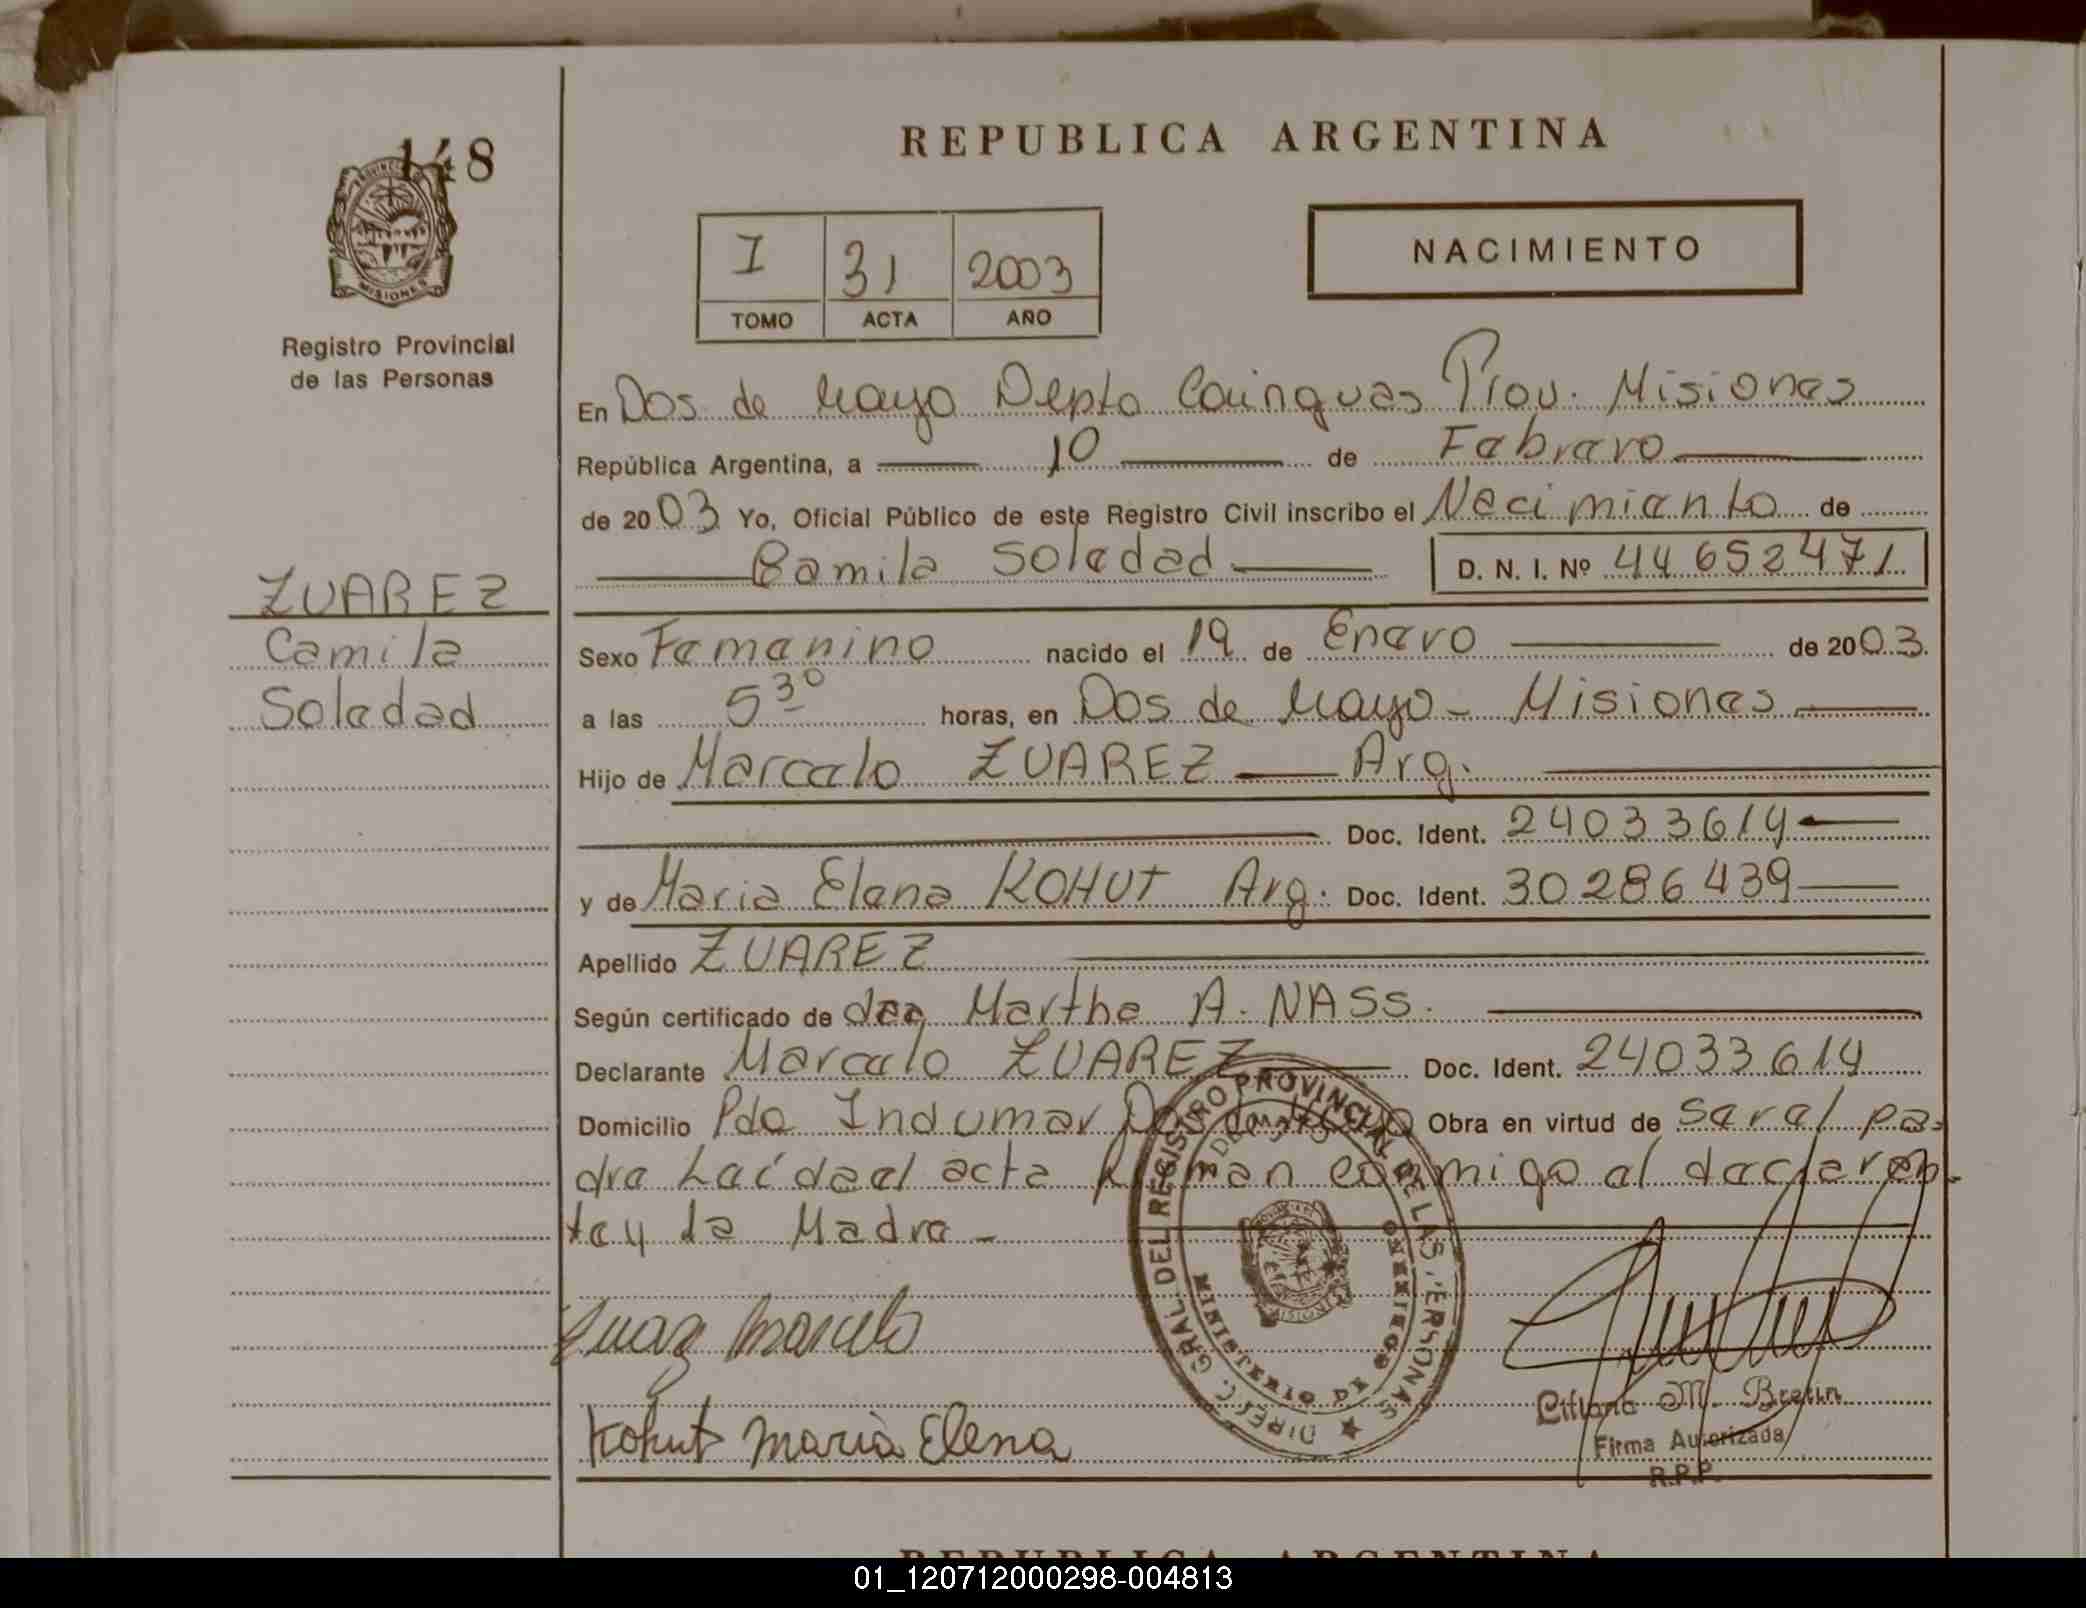 148
PROVINCIA
MISIONES
Registro Provincial
de las Personas
ZUAREZ
Camila
Soledad
REPUBLICA ARGENTINA
I 31 2003
TOMO ACTA AÑO
NACIMIENTO
En Dos de Mayo Depto Cainguas Prov. Misiones
República Argentina, a 10 de Febrero
de 2003 Yo, Oficial Público de este Registro Civil inscribo el Nacimiento de
Camila Soledad D. N. I. Nº 44652471
Sexo Femenino nacido el 19 de Enero de 2003
a las 5 30 horas, en Dos de Mayo - Misiones
Hijo de Marcelo ZUAREZ Arg.
Doc. Ident. 24033614
y de Maria Elena KOHUT Arg. Doc. Ident. 30286439
Apellido ZUAREZ
Según certificado de dra Martha A. NASS.
Declarante Marcelo ZUAREZ Doc. Ident. 24033614
Domicilio Pdo Indumar Dos de Mayo Obra en virtud de ser el pa-
dre Leída el acta firman conmigo el declaran-
te y la Madre -
Zuarez Marcelo
Kohut Maria Elena
DIREC. GRAL. DEL REGISTRO PROVINCIAL DE LAS PERSONAS
M. Bretin
Firma Autorizada
R.P.P.
REPUBLICA ARGENTINA
01_120712000298-004813